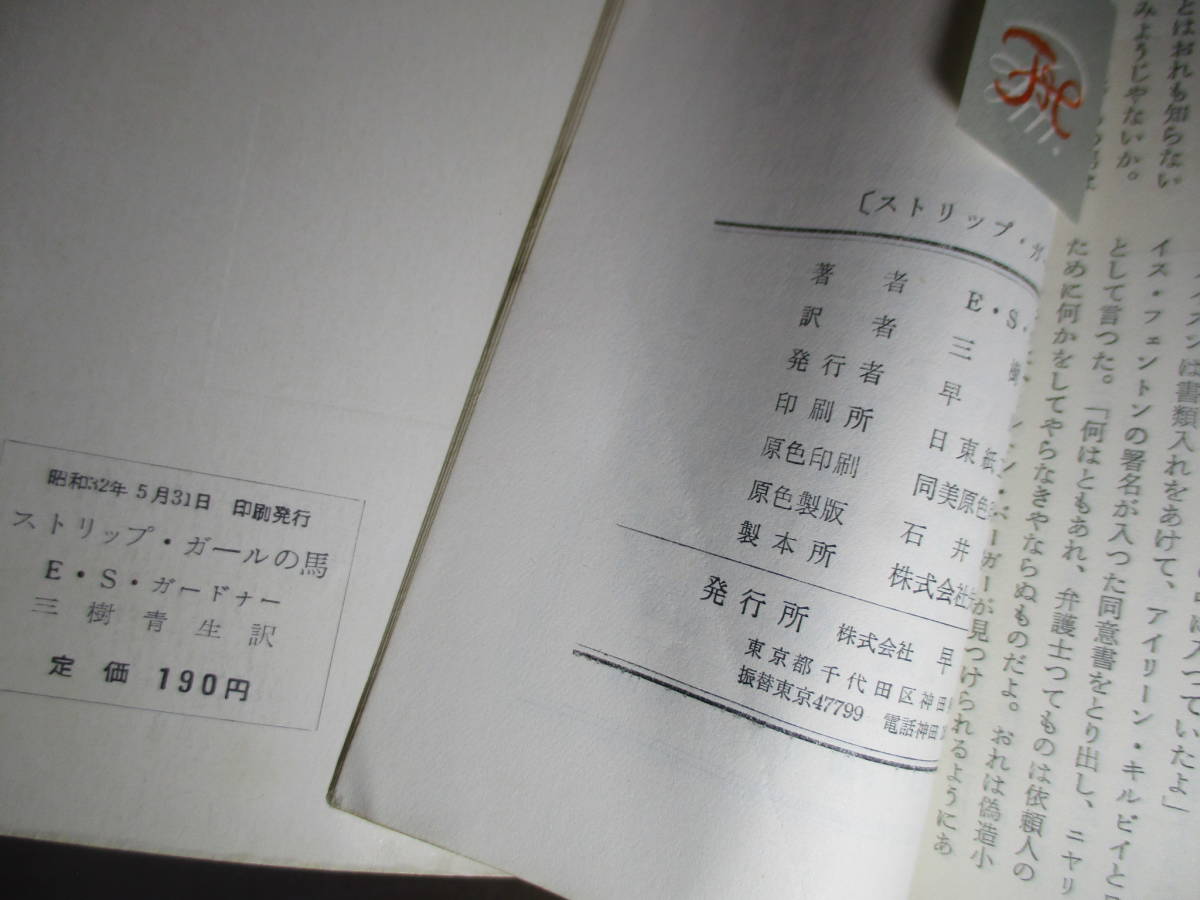 昭和32年 5月31日 印刷発行
ストリップ・ガールの馬
E・S・ガードナー
三樹青生訳
定価 190円
〔ストリップ・ガ
著者 E・S・
訳者 三樹
発行者 早
印刷所 日東紙
原色印刷 同美原色
原色製版 石井
製本所 株式会社
発行所 株式会社 早
東京都千代田区神田
振替東京47799 電話神田
とはおれも知らない
みようじゃないか。
は書類入れをあけて、アイリーン・キルビイと
イス・フェントンの署名が入つた同意書をとり出し、ニヤリ
として言つた。「何はともあれ、弁護士つてものは依頼人の
ために何かをしてやらなきやならぬものだよ。おれは偽造小
ガーが見つけられるようにあ
入つていたよ」